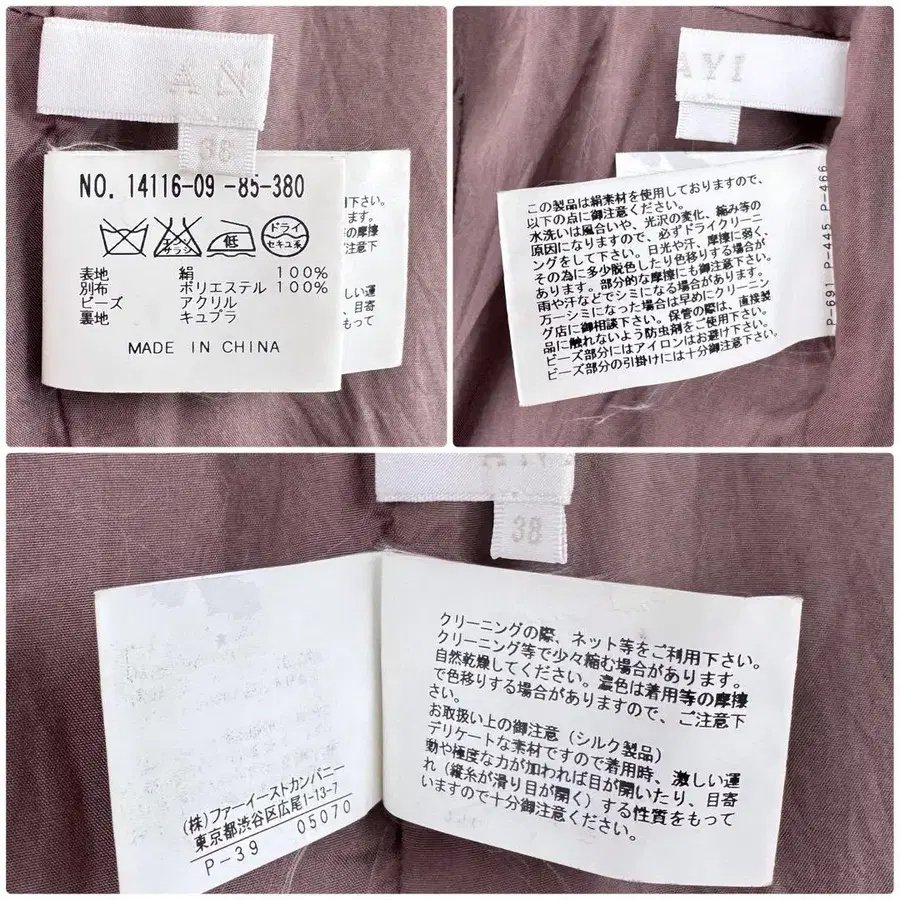 38
NO. 14116-09 -85-380
エンソ
サラシ
低
ドライ
セキユ系
表地 絹 100%
別布 ポリエステル 100%
ビーズ アクリル
裏地 キュプラ
MADE IN CHINA
下さい。
の摩擦
注意下
しい運
目寄
もって
この製品は絹素材を使用しておりますので、
以下の点に御注意ください。
水洗いは風合いや、光沢の変化、縮み等の
原因になりますので、必ずドライクリーニ
ングをして下さい。日光や汗、摩擦に弱く、
その為に多少脱色したり色移りする場合が
あります。部分的な摩擦にも御注意下さい。
雨や汗などでシミになる場合があります。
万一シミになった場合は早めにクリーニン
グ店に御相談下さい。保管の際は、直接製
品に触れないよう防虫剤をご使用下さい。
ビーズ部分にはアイロンはお避け下さい。
ビーズ部分の引掛けには十分御注意下さい。
P-691 P-445 P-466
38
(株)ファーイーストカンパニー
東京都渋谷区広尾1-13-7
P-39 05070
クリーニングの際、ネット等をご利用下さい。
クリーニング等で少々縮む場合があります。
自然乾燥してください。濃色は着用等の摩擦
で色移りする場合がありますので、ご注意下
さい。
お取扱い上の御注意(シルク製品)
デリケートな素材ですので着用時、激しい運
動や極度な力が加われば目が開いたり、目寄
れ(縦糸が滑り目が開く)する性質をもって
いますので十分御注意ください。